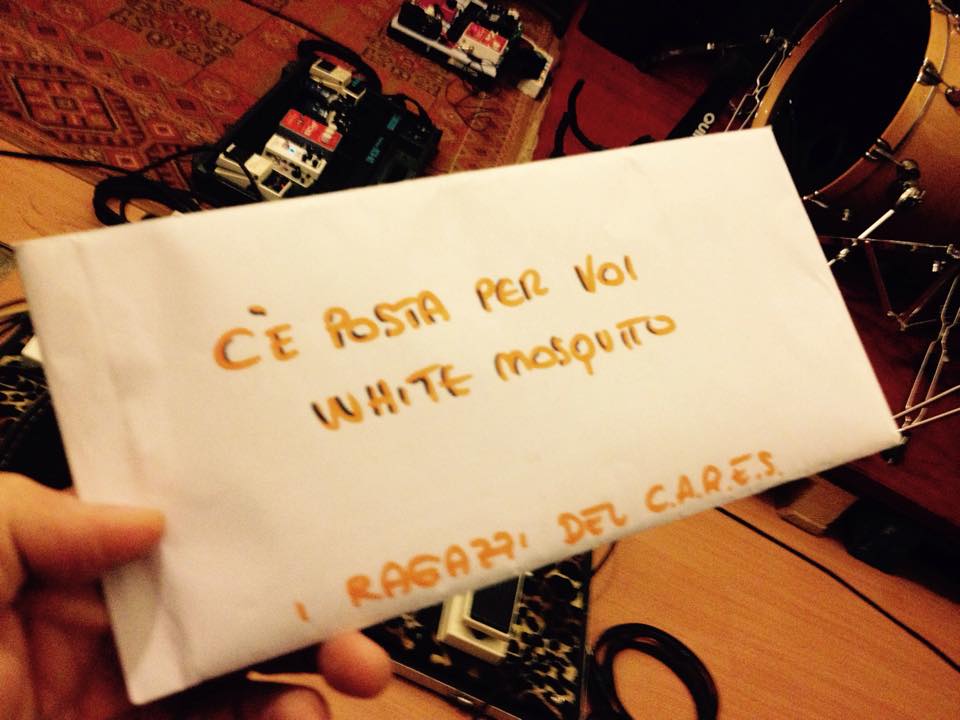 C'È POSTA PER VOI
WHITE MOSQUITO
I RAGAZZI DEL C.A.R.E.S.